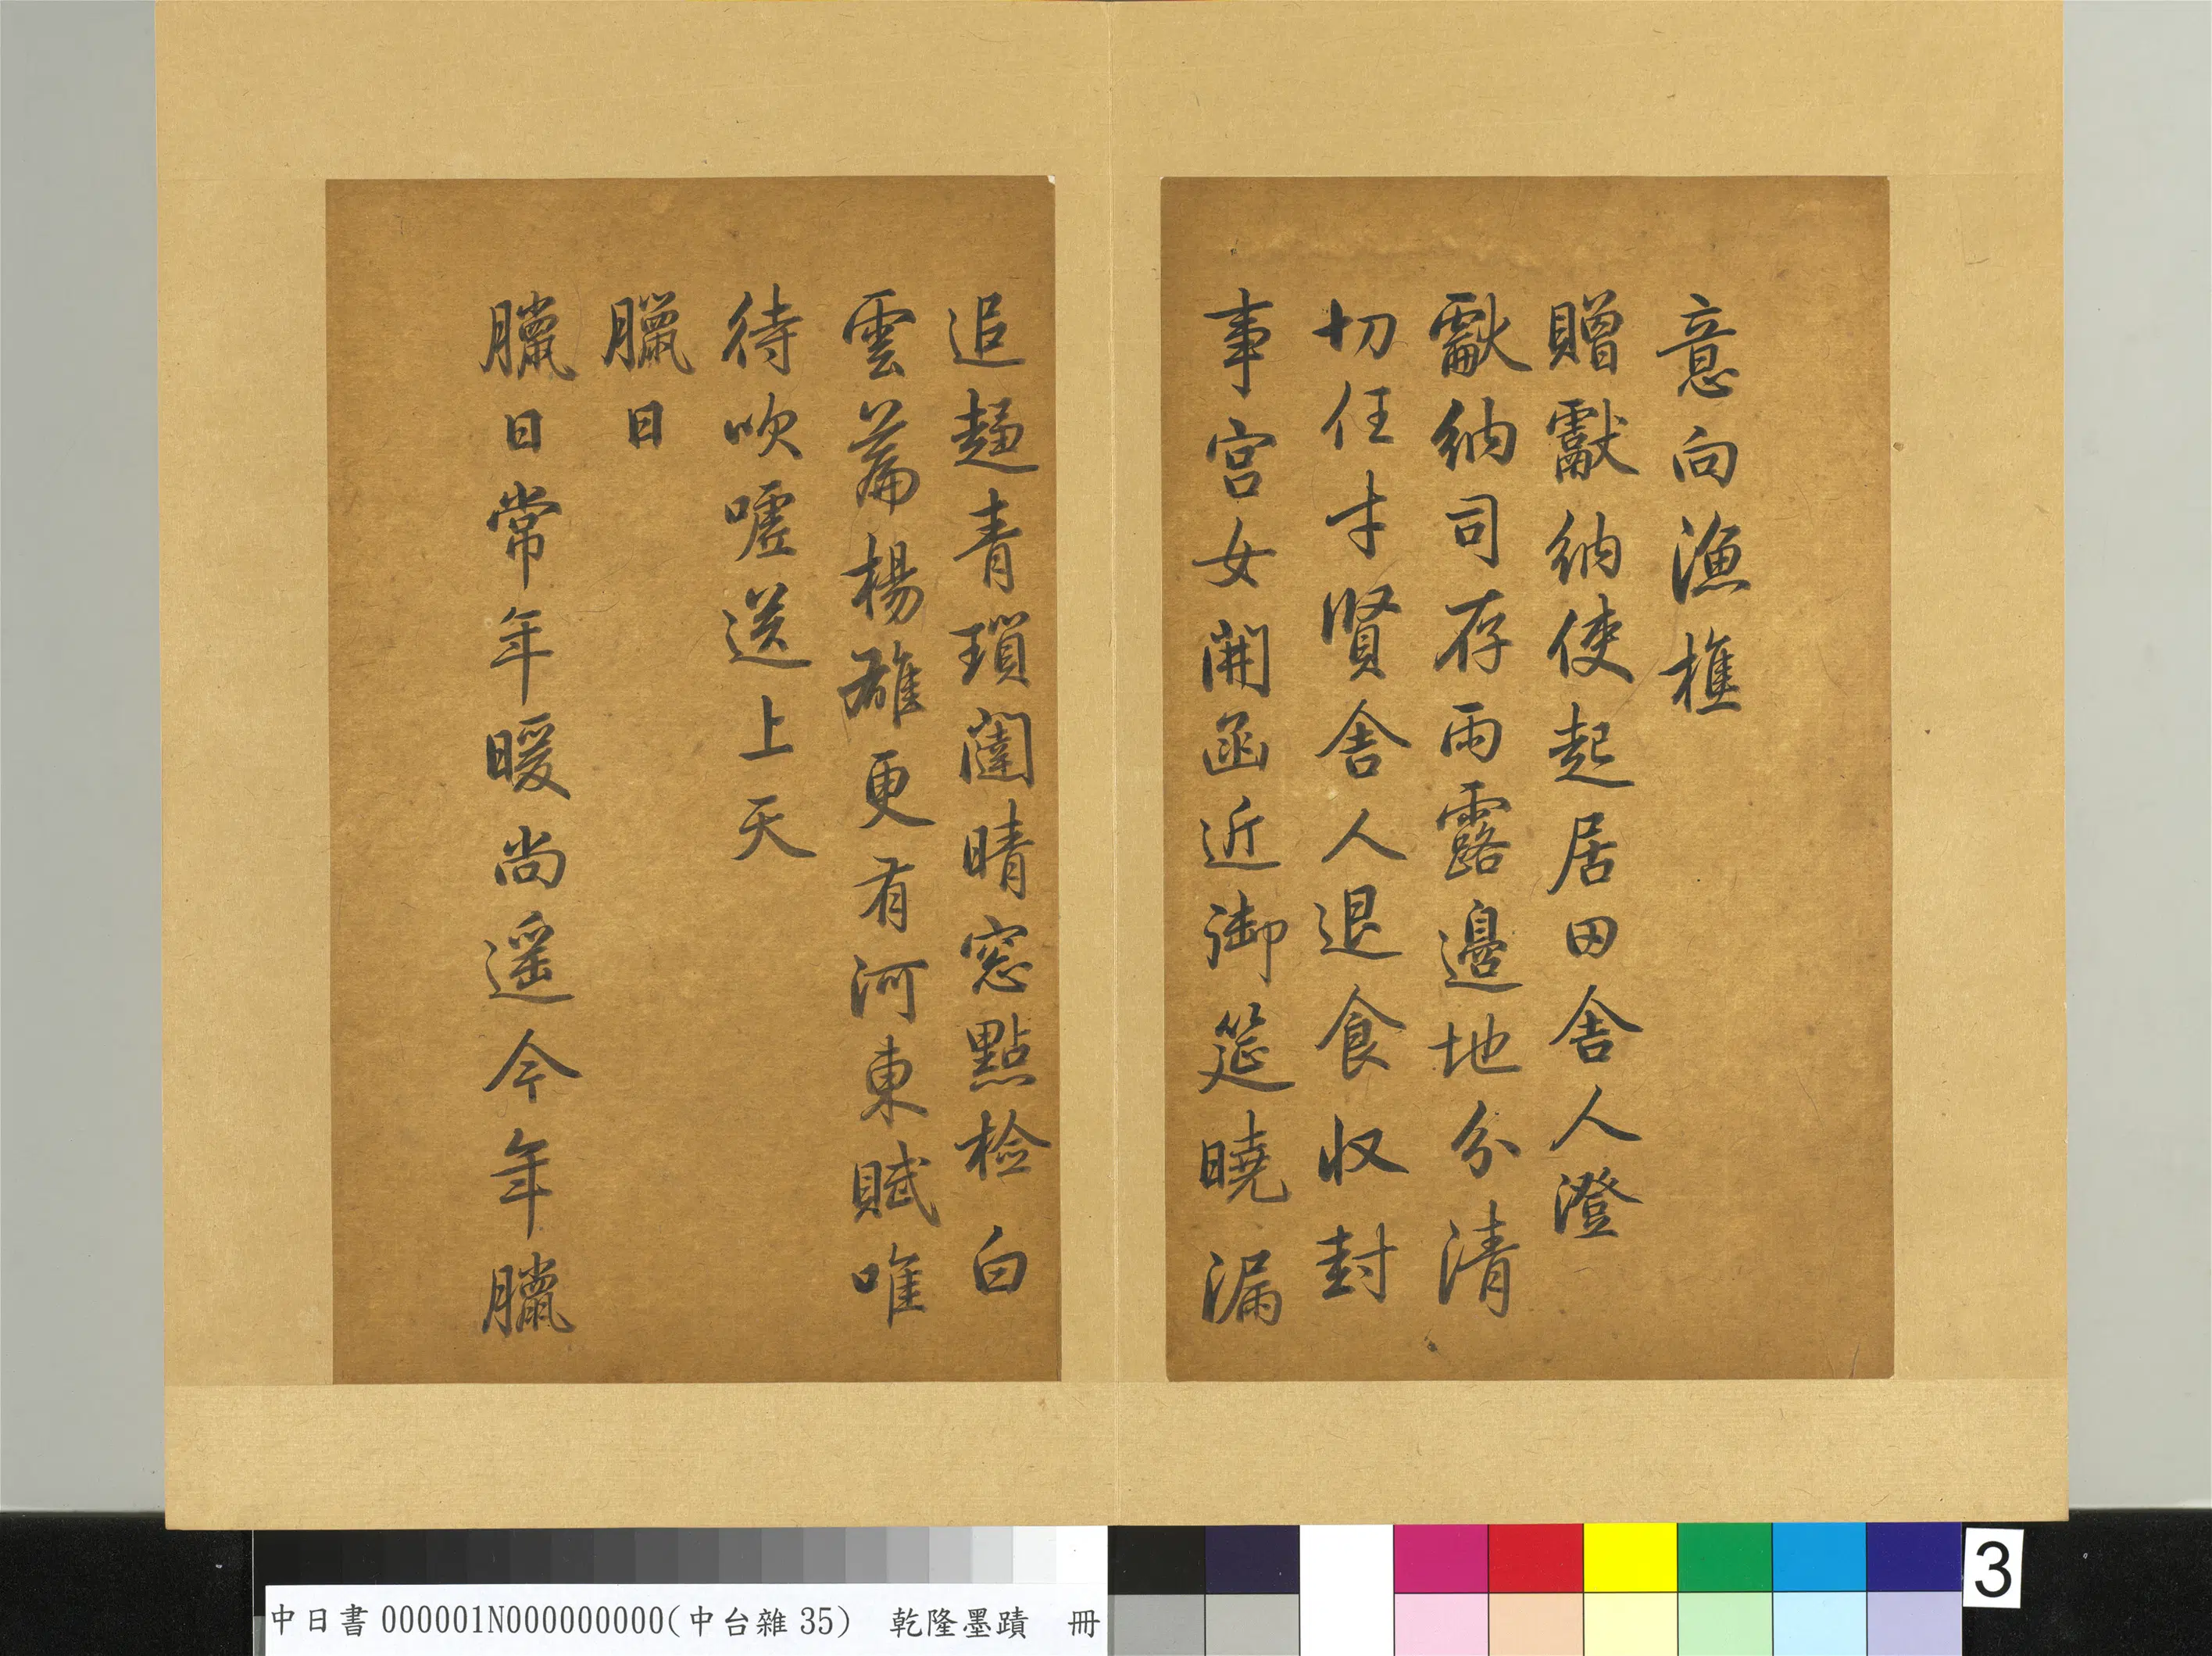 意向漁樵
贈獻納使起居田舍人澄
獻納司存雨露邊地分清
切任才賢舍人退食收封
事宮女開函近御筵曉漏
追趨青瑣闥晴窓點檢白
雲篇楊雄更有河東賦唯
待吹噓送上天
臘日
臘日常年暖尚遥今年臘
中日書000001N000000000(中台雜35) 乾隆墨蹟 冊
3